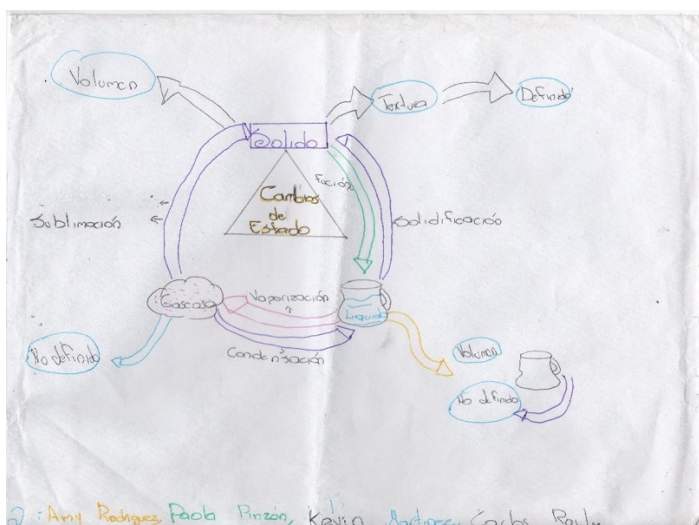 Volumen
Textura
Definido
Solido
Fución
Cambios
de
Estado
Sublimación
Solidificación
Gaseoso
Vaporización
Liquido
Condensación
No definido
Volumen
No definido
Amy Rodriguez, Paola Pinzón, Kevin Martinez, Carlos